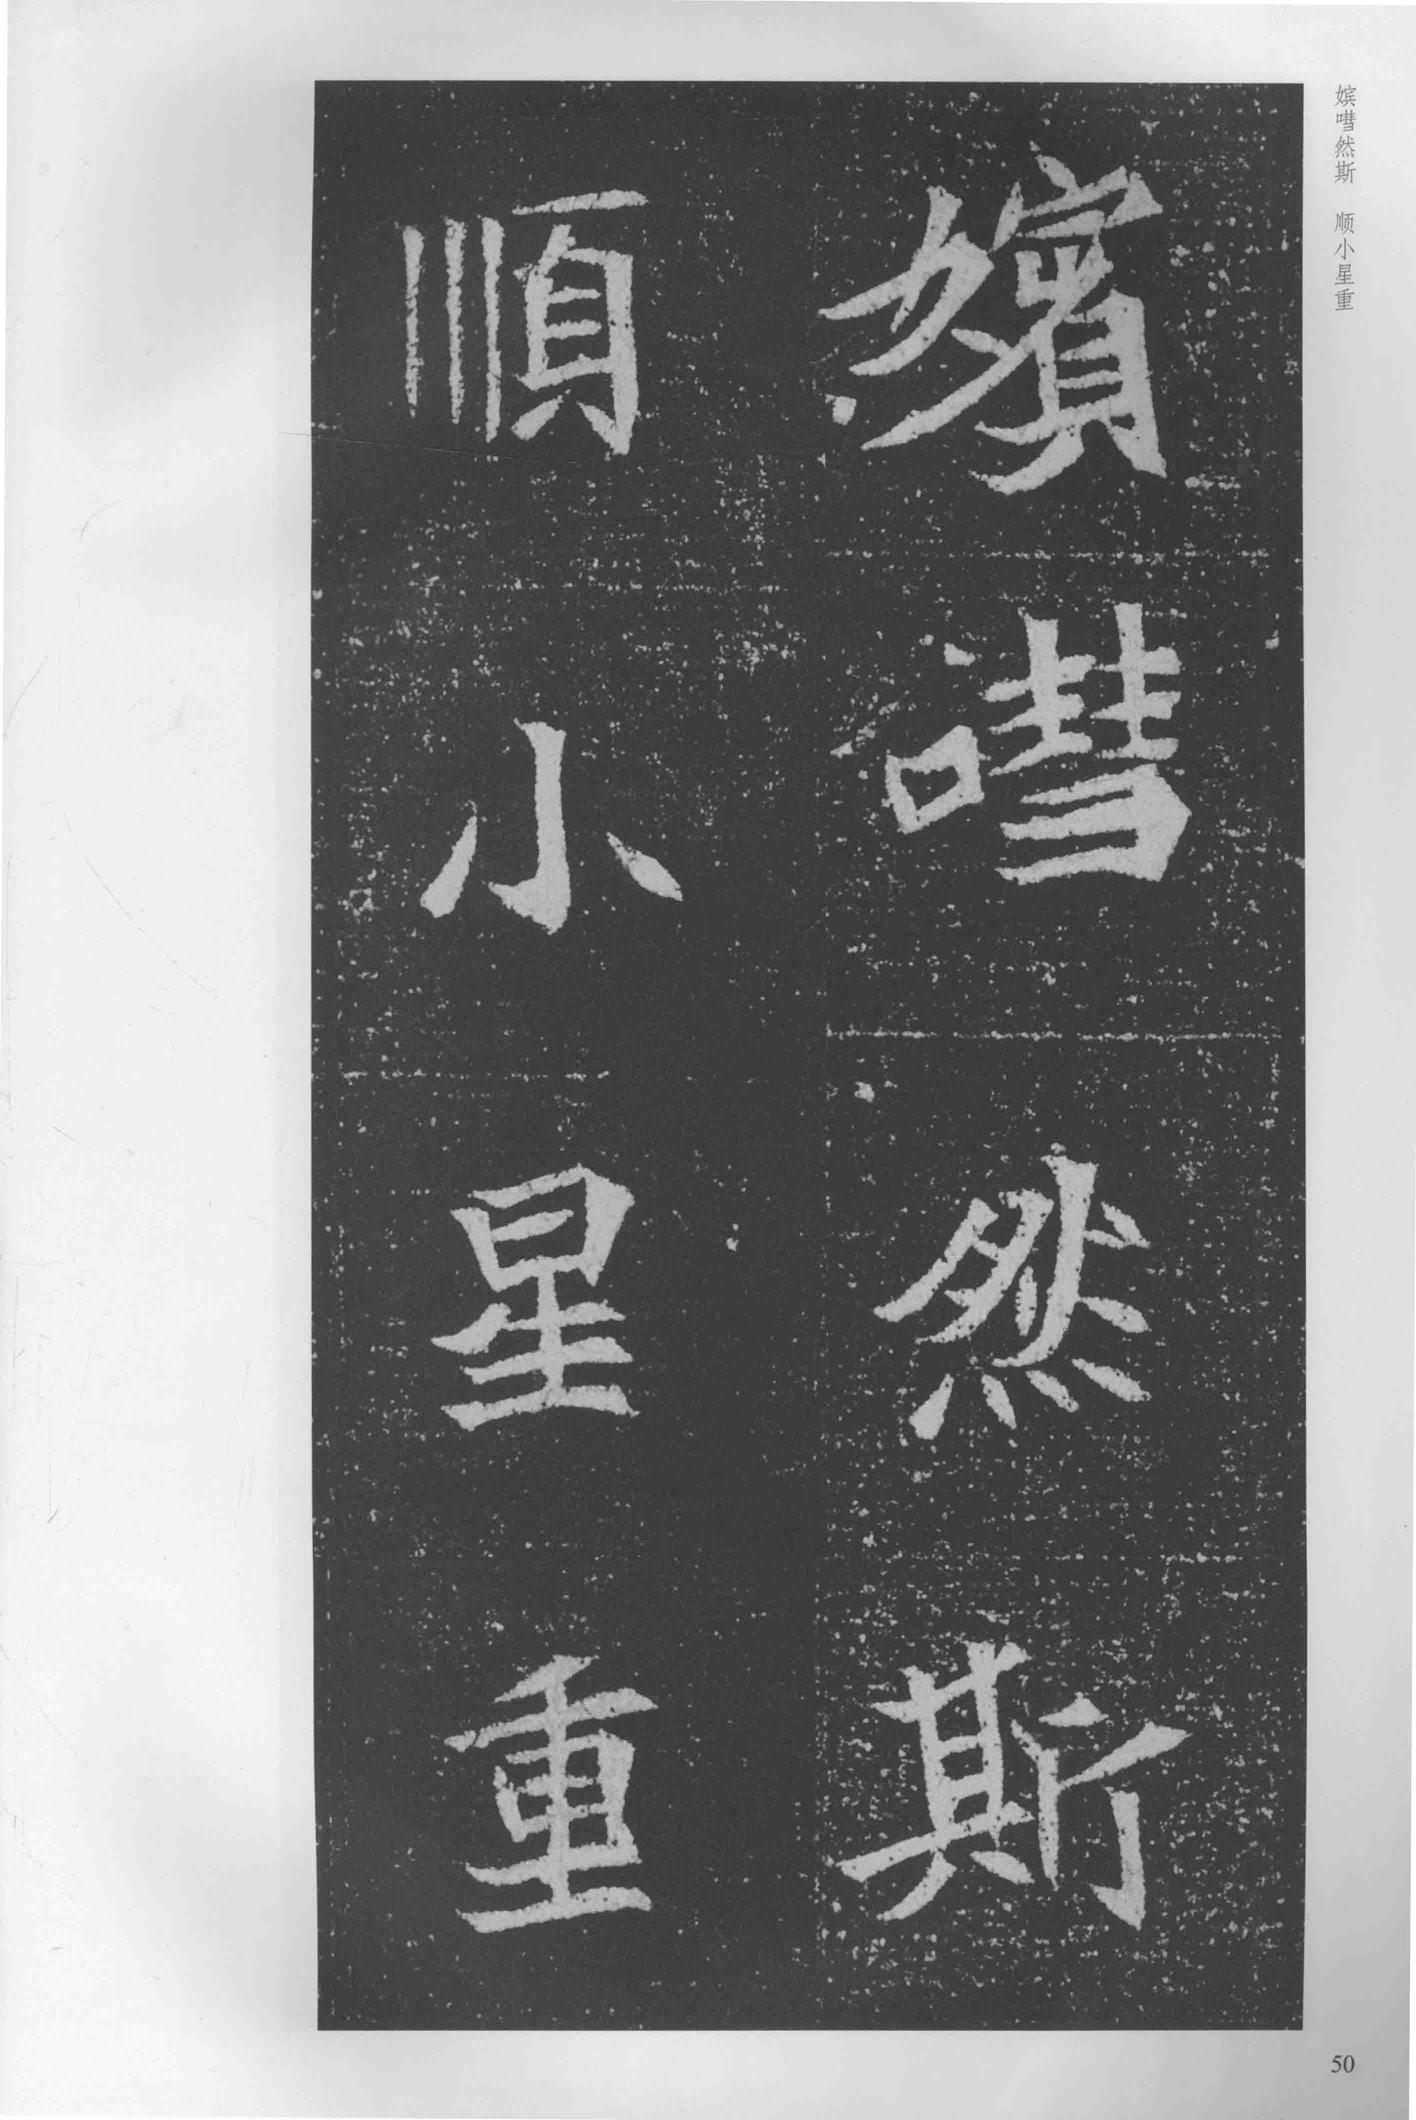 嬪嘒然斯
順小星重
嫔嘒然斯 顺小星重
50